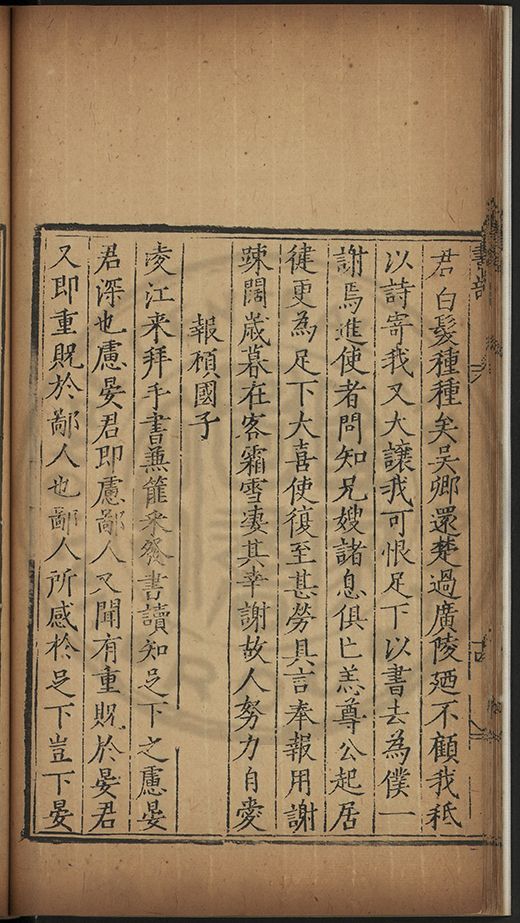 君白髮種種矣吴卿還楚過廣陵廼不顧我秪
以詩寄我又大讓我可恨足下以書去為僕一
謝焉進使者問知兄嫂諸息俱亡恙尊公起居
健更為足下大喜使復至甚勞具言奉報用謝
踈闊歳暮在客霜雪凄其幸謝故人努力自愛
報楨國子
凌江来拜手書兼篚来發書讀知足下之慮晏
君深也慮晏君即慮鄙人又聞有重貺於晏君
又即重貺於鄙人也鄙人所感於足下豈下晏